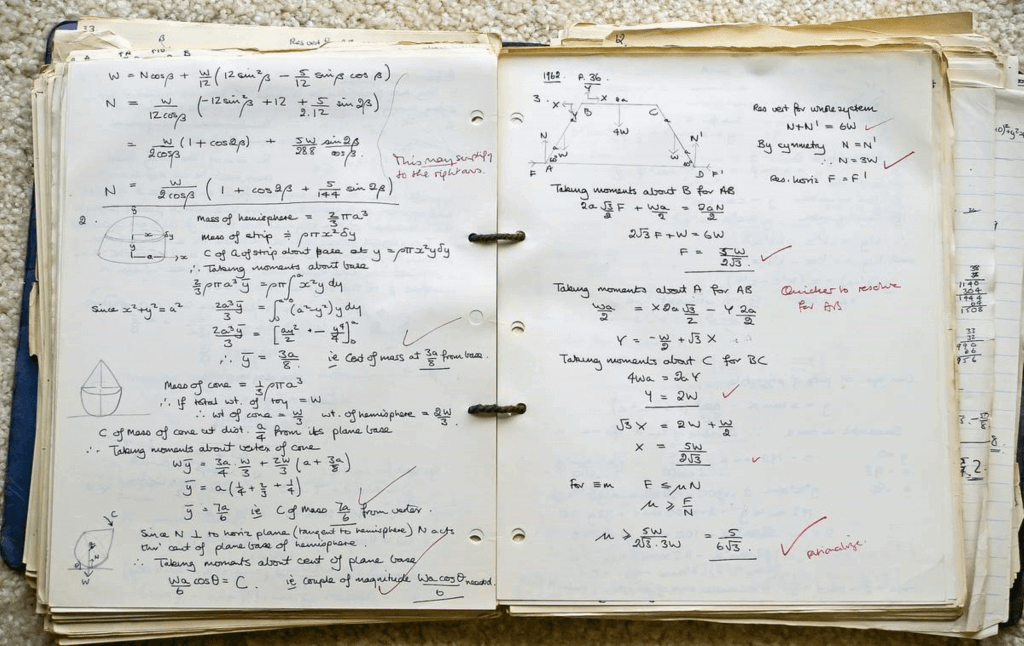 33
W = Ncosβ + W/12 (12 sin²β − 5/12 sinβ cosβ)
N = W/12cosβ (−12 sin²β + 12 + 5/2.12 sin 2β)
= W/2cosβ (1 + cos2β) + 5W/288 sin2β/cosβ.
This may simplify
to the right ans.
N = W/2cosβ (1 + cos2β + 5/144 sin 2β)
2.
Mass of hemisphere = 2/3 πa³
Mass of strip ≑ ρπx²δy
C of G of strip about base at y = ρπx²yδy
∴ Taking moments about base
2/3 ρπa³ȳ = ρπ∫x²y dy
Since x²+y²=a² 2a³ȳ/3 = ∫(a²−y²)y dy
2a³ȳ/3 =
∴ ȳ = 3a/8. ie C of mass at 3a/8 from base.
Mass of cone = 1/3 ρπa³
∴ If total wt. of toy = W
∴ wt of cone = W/3 wt. of hemisphere = 2W/3.
C of Mass of cone at dist. a/4 from its plane base
∴ Taking moments about vertex of cone
Wȳ = 3a/4 . W/3 + 2W/3 (a + 3a/8)
ȳ = a(1/4 + 2/3 + 1/4)
ȳ = 7a/6 ie C of Mass 7a/6 from vertex.
C
W
Since N ⊥ to horiz plane (tangent to hemisphere) N acts
thro' cent of plane base of hemisphere.
∴ Taking moments about cent of plane base
Wa/6 cosθ = C. ie couple of magnitude Wa cosθ/6 needed.
12.
1962 P. 36.
3.
Y
X
B
C
4W
N
W
F
A
N'
W
D
F'
Res vert for whole system
N+N' = 6W
By symmetry N = N'
∴ N = 3W
Res. horiz F = F'
Taking moments about B for AB
2a √3/2 F + Wa/2 = 2aN/2
2√3 F + W = 6W
F = 5W/2√3.
Taking moments about A for AB
Quicker to resolve
for AB
Wa/2 = X 2a √3/2 − Y 2a/2
Y = −W/2 + √3 X
Taking moments about C for BC
4Wa = 2a Y
Y = 2W
√3 X = 2W + W/2
X = 5W/2√3
For ≡m F ≤ μN
μ ≥ F/N
μ ≥ 5W/2√3.3W = 5/6√3.
rationalize.